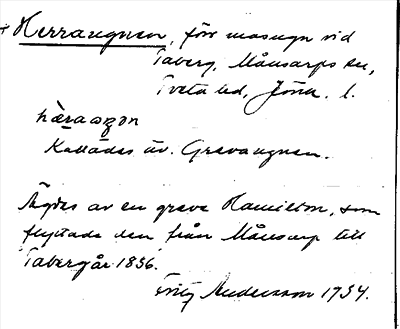 + Herraugnen, förr masugn vid
Taberg, Månsarps sn,
Tveta hd, Jönk. l.
hæ̀raɷŋən
Kallades äv. Grevaugnen.
Ägdes av en greve Hamilton, som
flyttade den från Månsarp till
Taberg år 1836.
Andersson 1934.